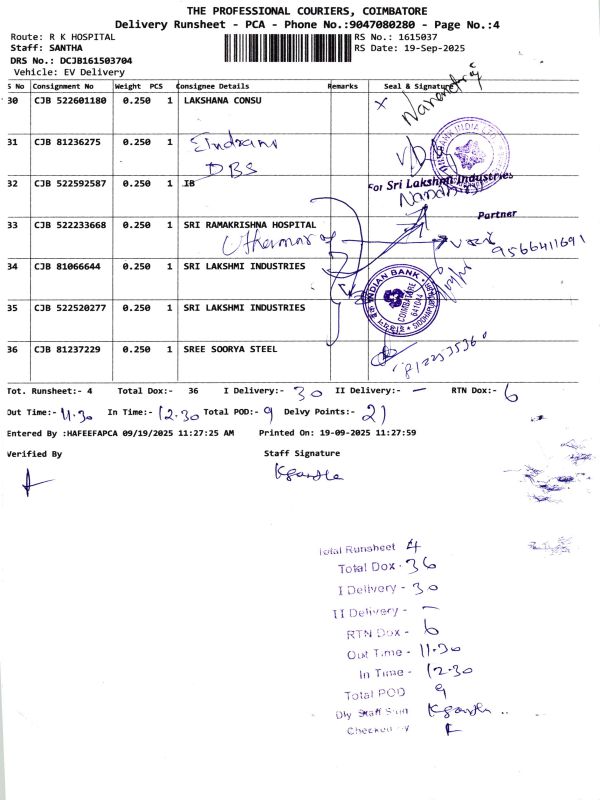 THE PROFESSIONAL COURIERS, COIMBATORE
Delivery Runsheet - PCA - Phone No.:9047080280 - Page No.:4
Route: R K HOSPITAL RS No.: 1615037
Staff: SANTHA RS Date: 19-Sep-2025
DRS No.: DCJB161503704
Vehicle: EV Delivery
S No Consignment No Weight PCS Consignee Details Remarks Seal & Signature
30 CJB 522601180 0.250 1 LAKSHANA CONSU X
31 CJB 81236275 0.250 1 E Indrani
DBS
32 CJB 522592587 0.250 1 IB For Sri Lakshmi Industries
Partner
33 CJB 522233668 0.250 1 SRI RAMAKRISHNA HOSPITAL
9566411691
34 CJB 81066644 0.250 1 SRI LAKSHMI INDUSTRIES INDIAN BANK COIMBATORE 641044
35 CJB 522520277 0.250 1 SRI LAKSHMI INDUSTRIES
36 CJB 81237229 0.250 1 SREE SOORYA STEEL
Tot. Runsheet:- 4 Total Dox:- 36 I Delivery:- 30 II Delivery:- — RTN Dox:- 6
Out Time:- 11.30 In Time:- 12.30 Total POD:- 9 Delvy Points:- 21
Entered By :HAFEEFAPCA 09/19/2025 11:27:25 AM Printed On: 19-09-2025 11:27:59
Verified By Staff Signature
Total Runsheet 4
Total Dox - 36
I Delivery - 30
II Delivery - —
RTN Dox - 6
Out Time - 11.30
In Time - 12.30
Total POD 9
Dly Staff Sign
Checked By